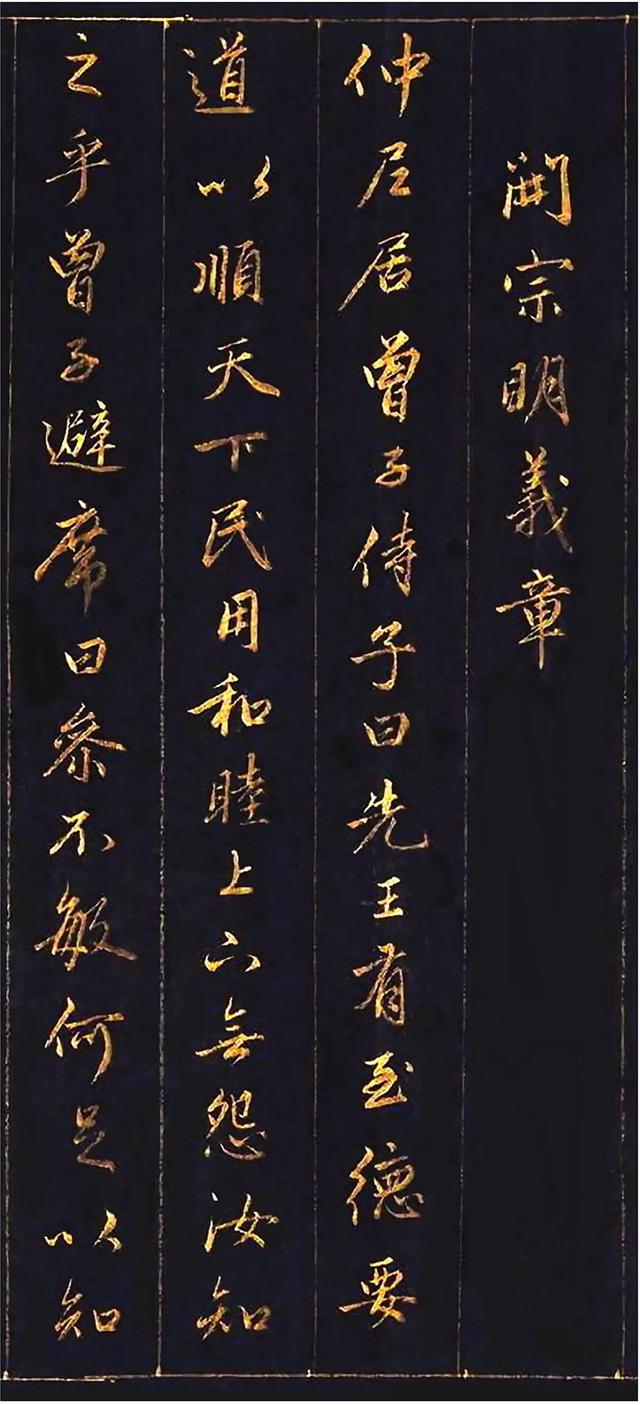 開宗明義章
仲尼居曾子侍子曰先王有至德要
道以順天下民用和睦上下無怨汝知
之乎曾子避席曰參不敏何足以知